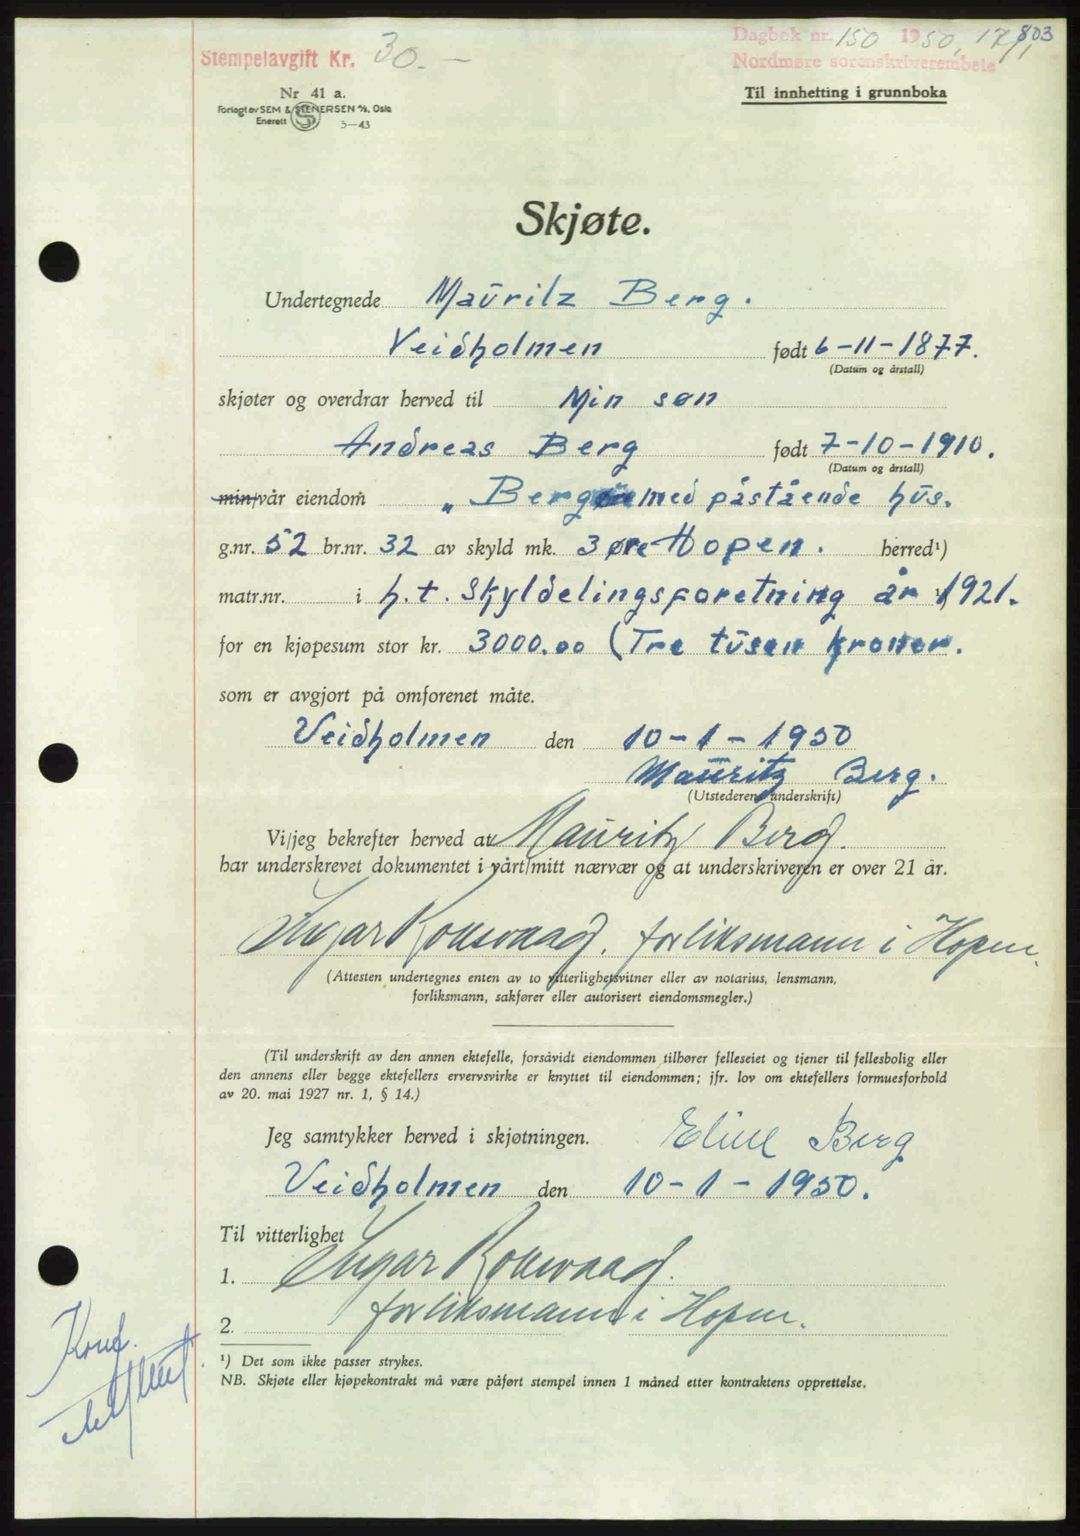 803
Dagbok nr. 150 1950, 17/1
Stempelavgift Kr. 30.—
Nordmøre sorenskriverembete
Nr 41 a.
Til innhefting i grunnboka
Forlagt av SEM & STENERSEN A/S, Oslo
Enerett 5—43
Skjøte.
Undertegnede Mauritz Berg.
Veidholmen født 6-11-1877.
(Datum og årstall)
skjøter og overdrar herved til Min søn
Andreas Berg født 7-10-1910.
(Datum og årstall)
min/vår eiendom „ Berg med påstående hus.
g.nr. 52 br.nr. 32 av skyld mk. 3 øre Hopen. herred¹)
matr.nr. i h.t. Skyldelingsforetning år 1921.
for en kjøpesum stor kr. 3000.00 (Tre tusen kroner.
som er avgjort på omforenet måte.
Veidholmen den 10-1-1950
Mauritz Berg.
(Utstederens underskrift)
Vi/jeg bekrefter herved at Mauritz Berg.
har underskrevet dokumentet i vårt/mitt nærvær og at underskriveren er over 21 år.
Ingar Rokswaag. forliksmann i Hopen.
(Attesten undertegnes enten av to vitterlighetsvitner eller av notarius, lensmann,
forliksmann, sakfører eller autorisert eiendomsmegler.)
(Til underskrift av den annen ektefelle, forsåvidt eiendommen tilhører felleseiet og tjener til fellesbolig eller
den annens eller begge ektefellers ervervsvirke er knyttet til eiendommen; jfr. lov om ektefellers formuesforhold
av 20. mai 1927 nr. 1, § 14.)
Jeg samtykker herved i skjøtningen. Eline Berg
Veidholmen den 10-1-1950.
Til vitterlighet
1. Ingar Rokswaag.
2. forliksmann i Hopen.
¹) Det som ikke passer strykes.
NB. Skjøte eller kjøpekontrakt må være påført stempel innen 1 måned etter kontraktens opprettelse.
Konf.